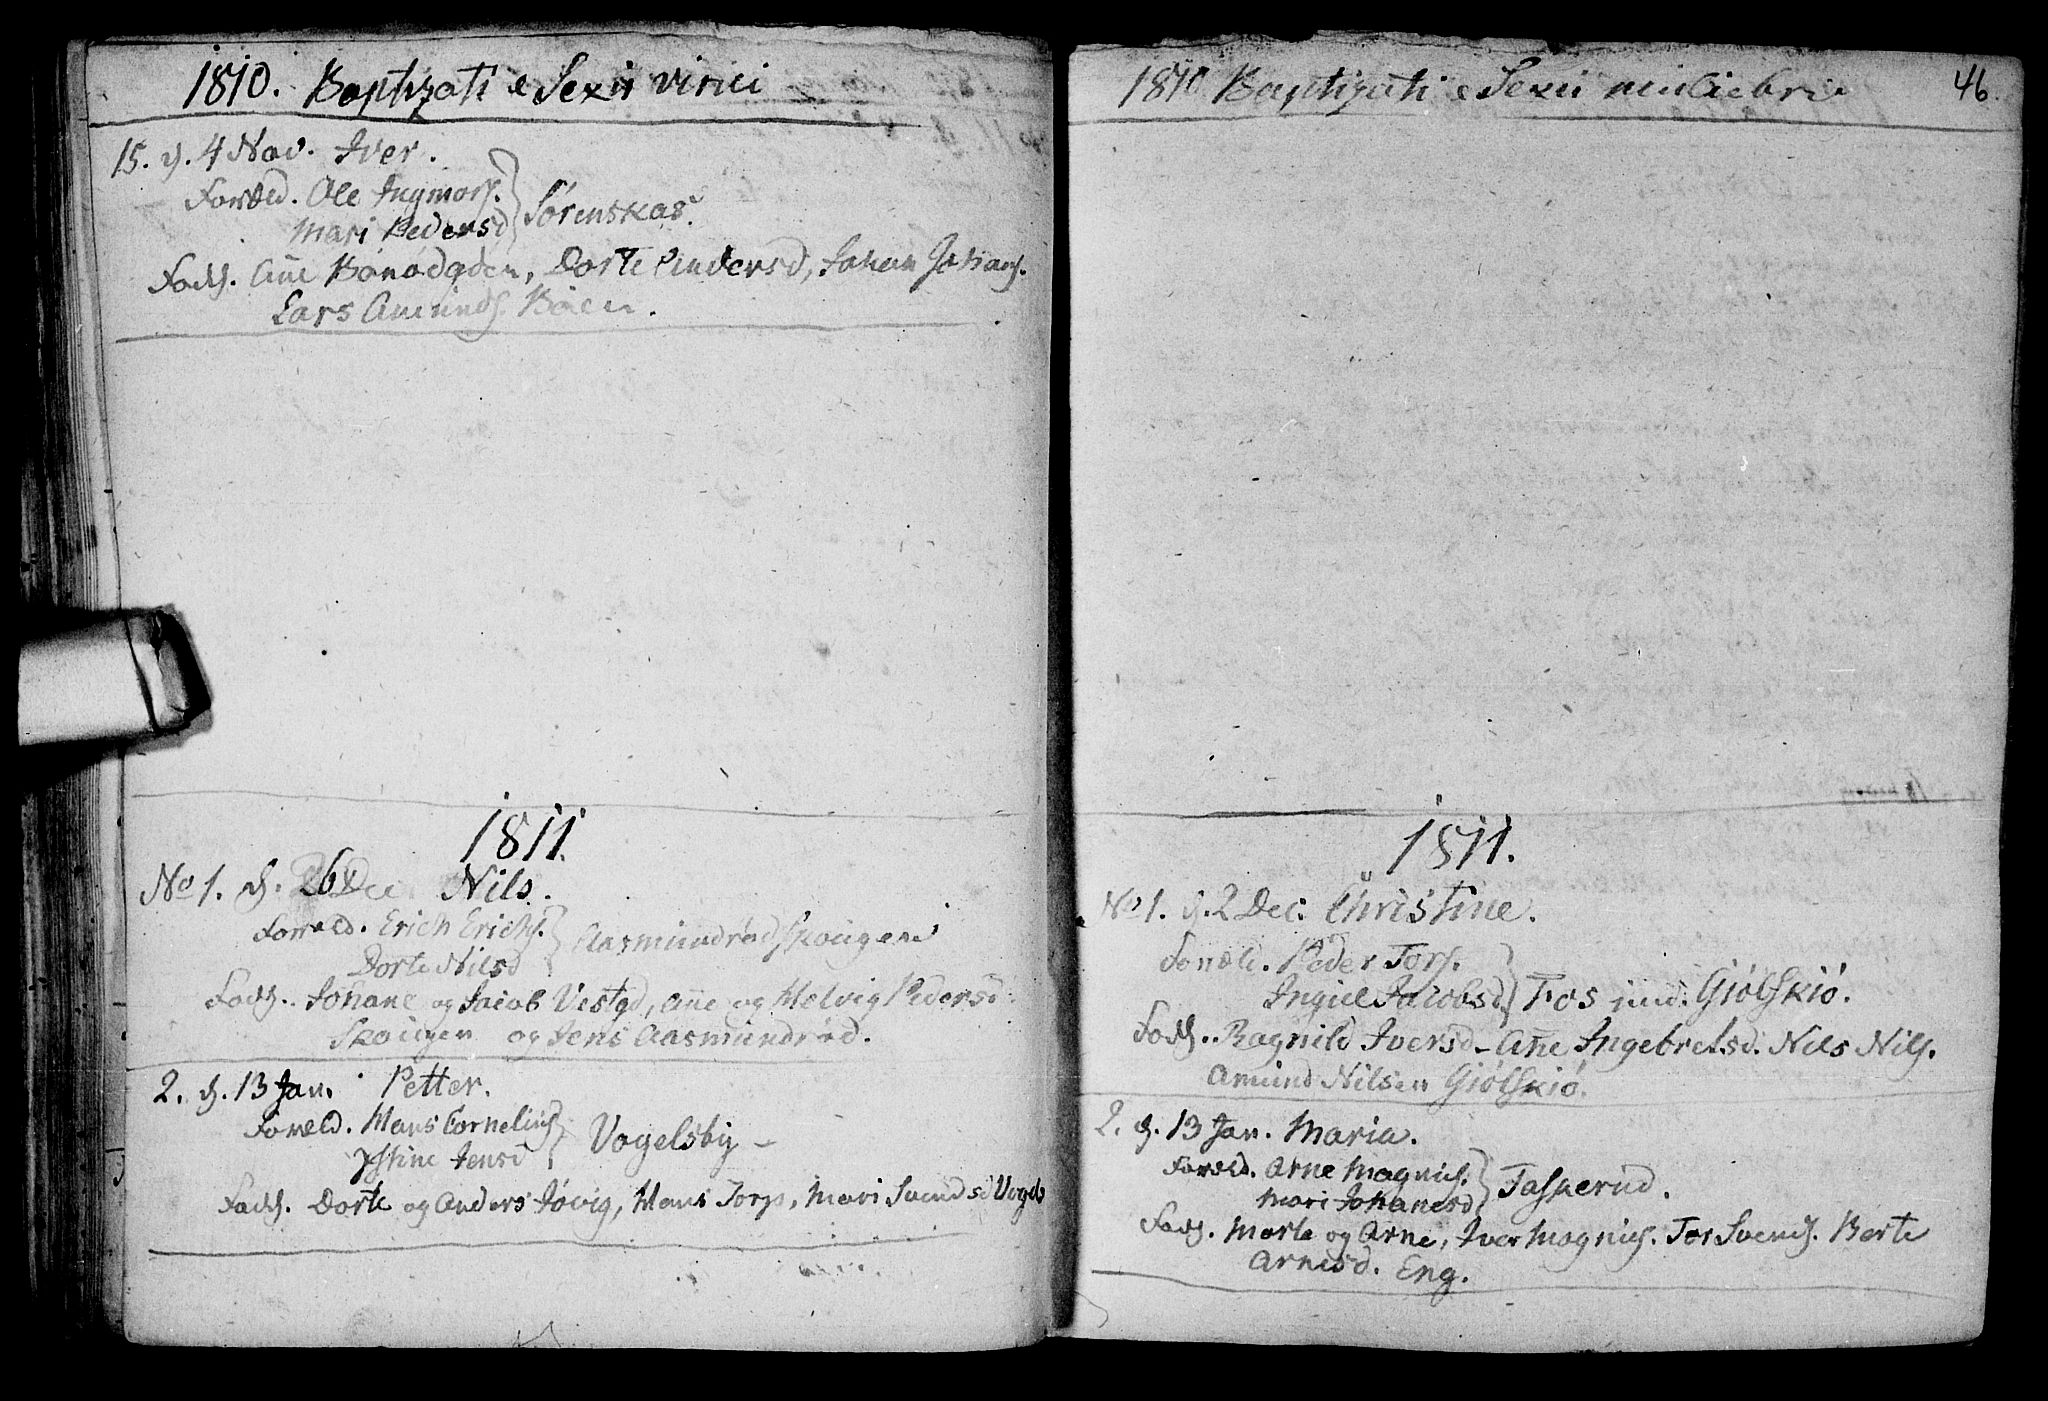 1810. Baptizati e Sexu virili
15. d. 4 Nov. Iver.
Foræld. Ole Ingmors.
Mari Pedersd
Sørenskas.
Fadd. Añe Bønødgden, Dorte Andersd, Johan Johans.
Lars Amunds. Bøen.
1811.
No 1. d. 26 Dec Nils.
Foræld. Erich Erichs.
Dorte Nilsd
Aasmundrød Skougen
Fadd. Johane og Jacob Vestgd, Añe og Helvig Pedersd
Skougen og Jens Aasmundrød.
2. d. 13 Jan. Petter.
Foræld. Hans Cornelius
Justine Jensd
Vogelsby –
Fadd. Dorte og Anders Tøvig, Hans Torp, Mari Svendsd Vogels
1810 Baptizati e Sexu muliebri
46.
1811.
No 1. d. 2 Dec. Christine.
Foræld. Peder Tors.
Ingiel Jacobsd
Fos ind. Giølskiø.
Fadd. Ragnild Iversd – Añe Ingebretsd. Nils Nils.
Amund Nilsen Giølskiø.
2. d. 13 Jan. Maria.
Foræld. Arne Magnus.
Mari Johanesd
Taskerud.
Fadd. Marte og Arne, Iver Magnus. Tor Svends. Berte
Arnesd. Eng.